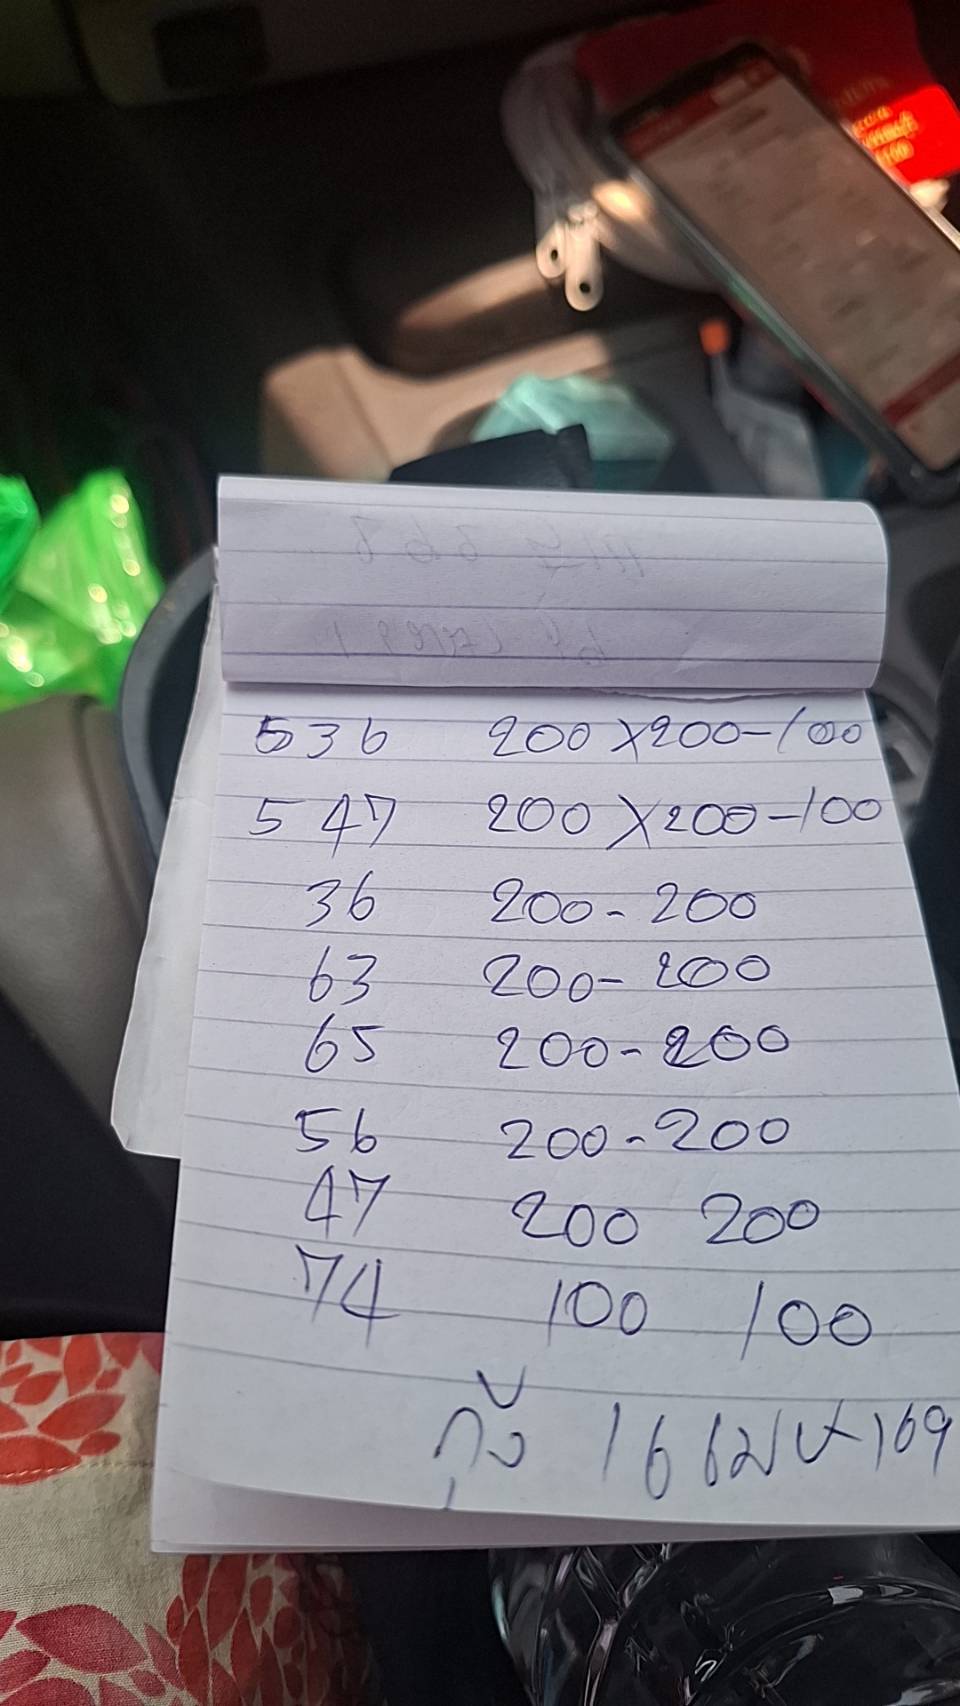 536 200×200-100
547 200×200-100
36 200-200
63 200-200
65 200-200
56 200-200
47 200 200
74 100 100
กุ้ง 16 เมษ